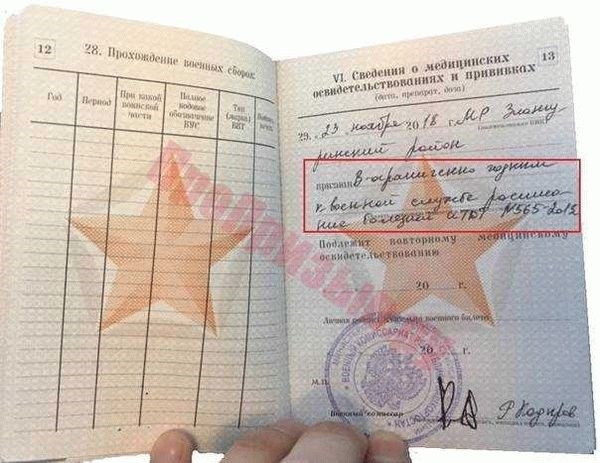 12
28. Прохождение военных сборов
Год
Период
При какой воинской части
Полное кодовое обозначение ВУС
Тип (марка) ВВТ
VI. Сведения о медицинских
освидетельствованиях и прививках
13
(дата, препарат, доза)
29. 23 ноября 2018 г. МР Зианчу
ринский район
признан В-ограниченно годным
к военной службе расписа
ние болезней и ТДТ №565-2013
Подлежит повторному медицинскому
освидетельствованию
20 г.
Личная
военного билета
20 г.
М.П.
Военный комиссар
Р Кадыров
ВОЕННЫЙ КОМИССАРИАТ